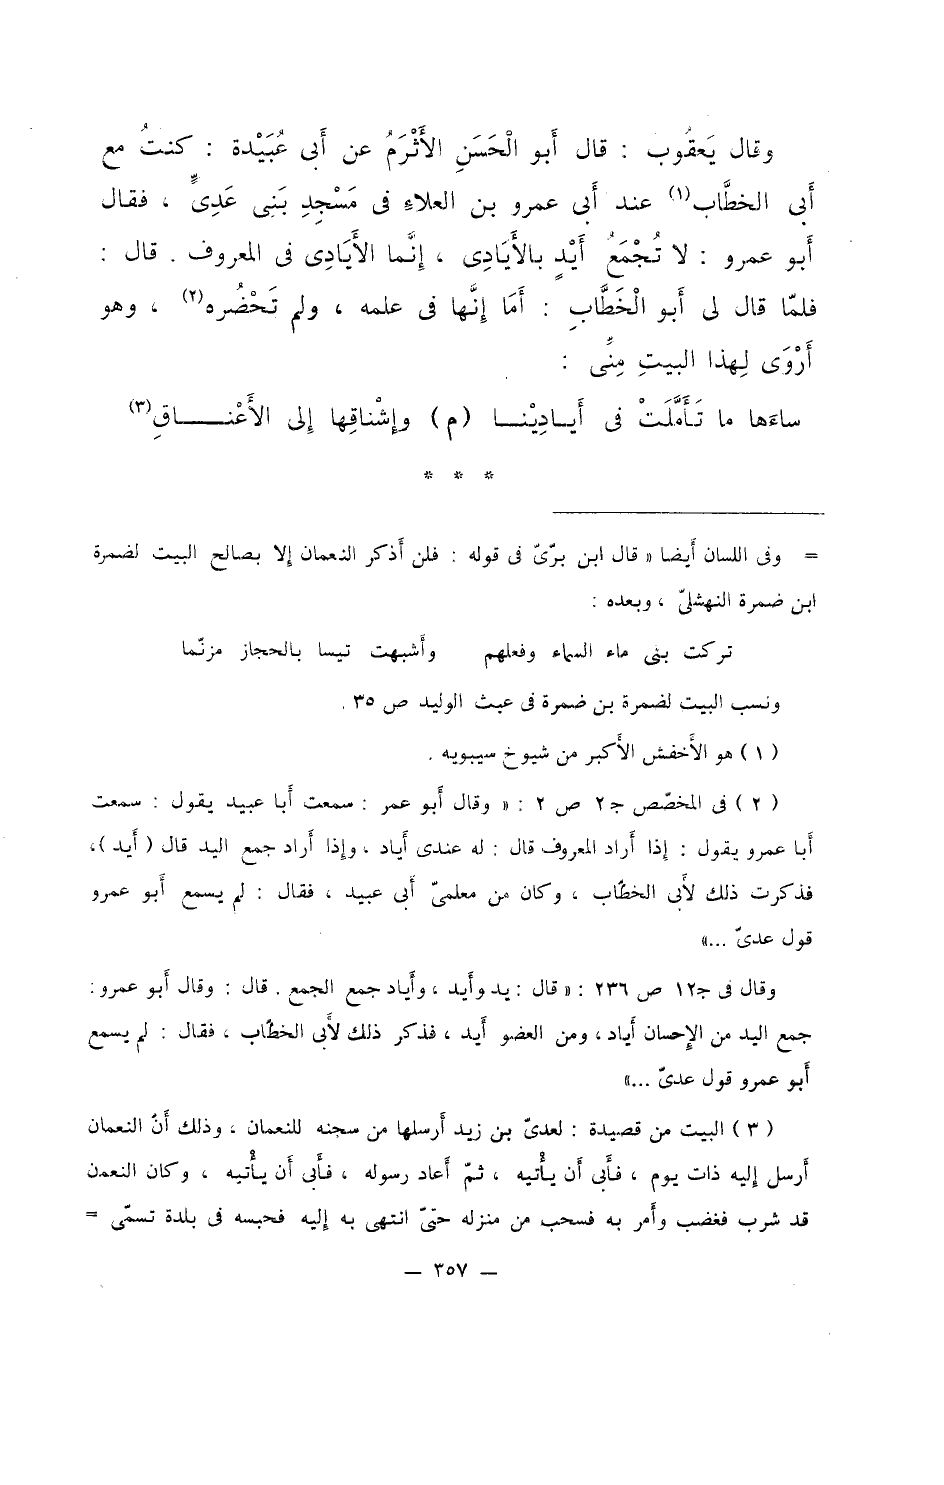 وقال يَعقُوب : قال أَبو الْحَسَنِ الأَثْرَمُ عن أَبى عُبَيْدة : كنتُ مع
أَبى الخطَّاب(١) عند أَبى عمرو بن العلاءِ فى مَسْجِدِ بَنِى عَدِىٍّ ، فقال
أَبو عمرو : لا تُجْمَعُ أَيْدٍ بالأَيَادِى ، إِنَّما الأَيَادِى فى المعروف . قال :
فلمّا قال لى أَبو الْخَطَّابِ : أَمَا إِنَّها فى علمه ، ولم تَحْضُره(٢) ، وهو
أَرْوَى لِهذا البيتِ مِنِّى :
ساءَها ما تَأَمَّلَتْ فى أَيـاديْنـا (م) وإِشْناقِها إِلى الأَعْنـــاقِ(٣)
* * *
= وفى اللسان أَيضا « قال ابن برّىّ فى قوله : فلن أَذكر النعمان إلا بصالح البيت لضمرة
ابن ضمرة النهشلىّ ، وبعده :
تركت بنى ماء السماء وفعلهم وأَشبهت تيسا بالحجاز مزنّما
ونسب البيت لضمرة بن ضمرة فى عبث الوليد ص ٣٥ .
( ١ ) هو الأَخفش الأَكبر من شيوخ سيبويه .
( ٢ ) فى المخصّص ج٢ ص ٢ : « وقال أَبو عمر : سمعت أَبا عبيد يقول : سمعت
أَبا عمرو يقول : إذا أَراد المعروف قال : له عندى أَياد ، وإذا أَراد جمع اليد قال ( أَيد )،
فذكرت ذلك لأَبى الخطّاب ، وكان من معلمىّ أَبى عبيد ، فقال : لم يسمع أَبو عمرو
قول عدىّ ...»
وقال فى ج١٢ ص ٢٣٦ : « قال : يد وأَيد ، وأَياد جمع الجمع . قال : وقال أَبو عمرو :
جمع اليد من الإِحسان أَياد ، ومن العضو أَيد ، فذكر ذلك لأَبى الخطّاب ، فقال : لم يسمع
أَبو عمرو قول عدىّ ...»
( ٣ ) البيت من قصيدة : لعدىّ بن زيد أَرسلها من سجنه للنعمان ، وذلك أَنّ النعمان
أَرسل إليه ذات يوم ، فأَبى أَن يأْتيه ، ثمّ أَعاد رسوله ، فأَبى أَن يأْتيه ، وكان النعمن
قد شرب فغضب وأَمر به فسحب من منزله حتىّ انتهى به إليه فحبسه فى بلدة تسمّى =
— ٣٥٧ —